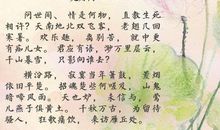 问世间，情是何物，直教生死
相许？天南地北双飞客，老翅几回
寒暑。欢乐趣，离别苦，就中更
有痴儿女。君应有语，渺万里层云，
千山暮雪，只影向谁去？
横汾路，寂寞当年箫鼓，荒烟
依旧平楚。招魂楚些何嗟及，山鬼
暗啼风雨。天也妒，未信与，莺
儿燕子俱黄土。千秋万古，为留待
骚人，狂歌痛饮，来访雁丘处。